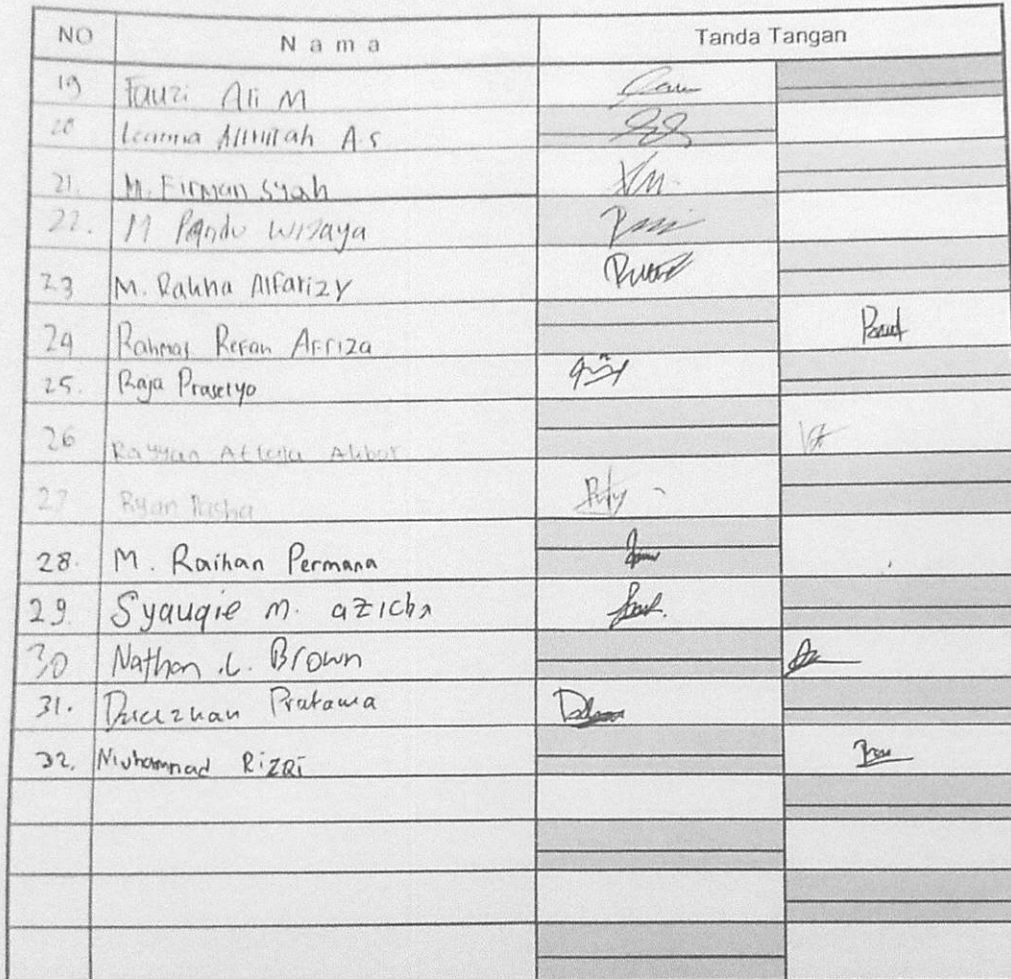 NO Nama Tanda Tangan
19 Fauzi Ali M
20 A.S
21. M. Firman syah
22. M Pandu Wijaya
23 M. Rakha Alfarizy
24 Rahmas Refan Afriza
25. Raja Prasetyo
26 Rayyan Akbar
27 Ryan Pasha
28. M. Raihan Permana
29. Syauqie M. azicha
30 Nathan .L. Brown
31. Pratama
32. Muhammad RizQi